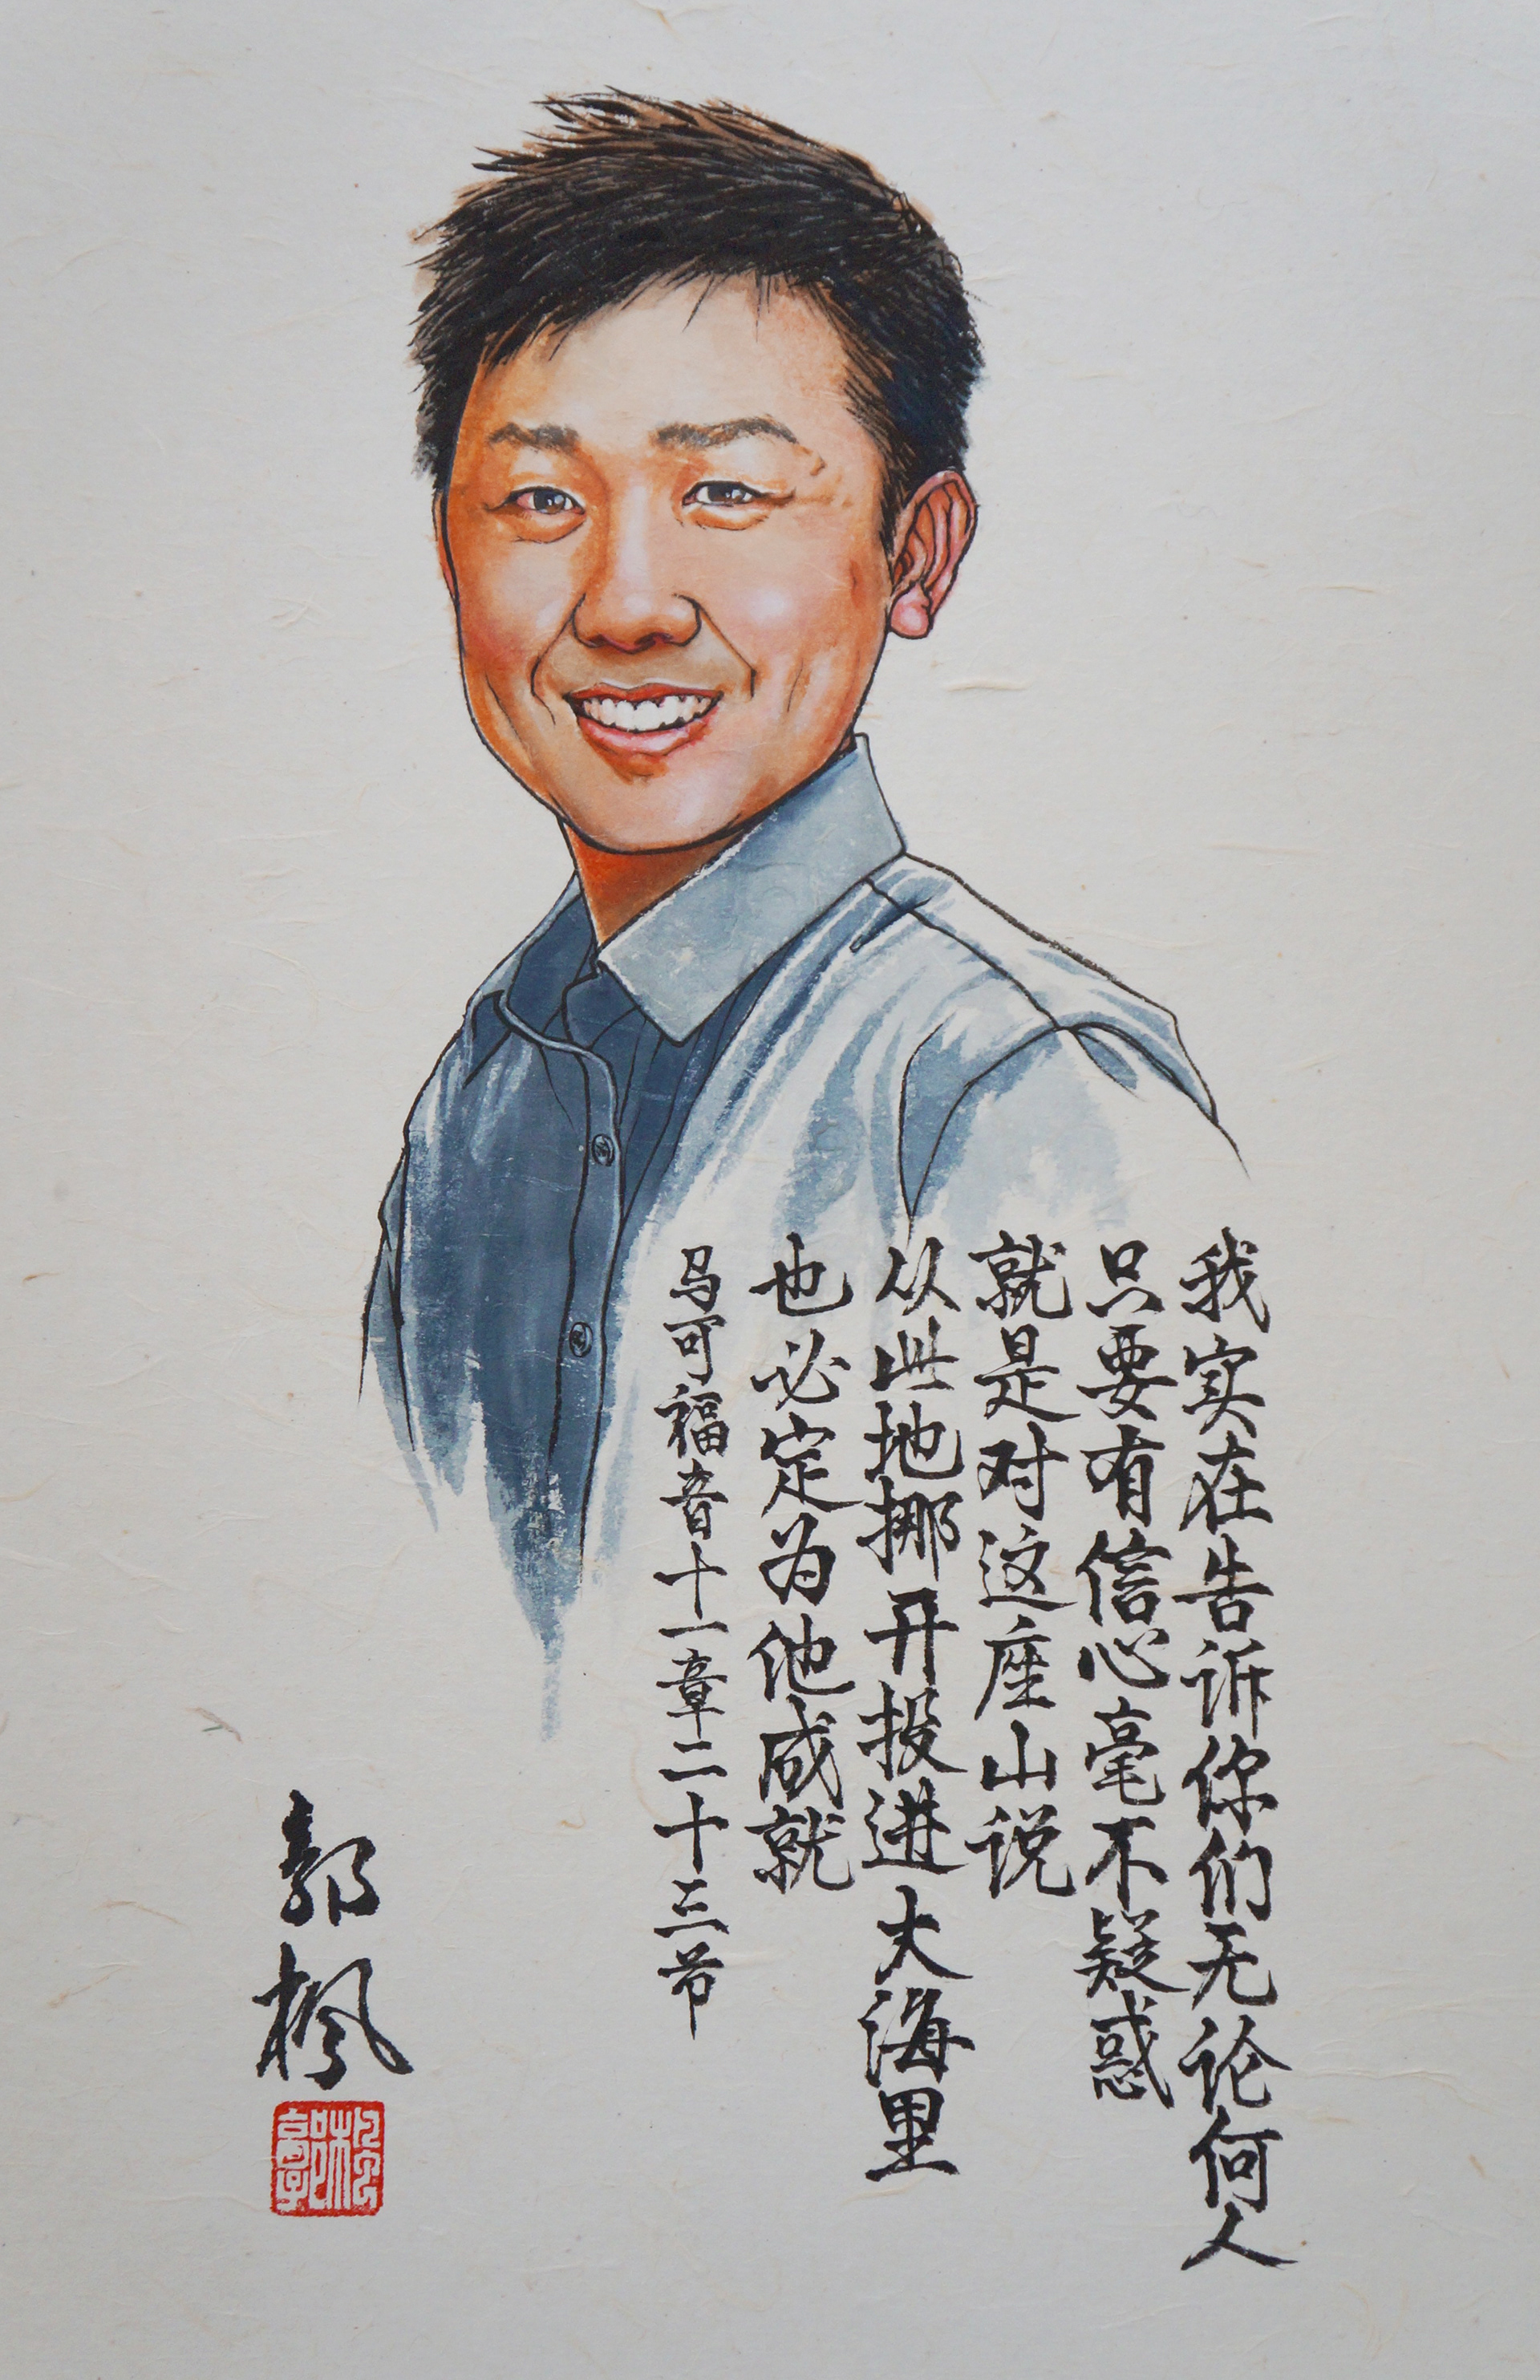 我实在告诉你们无论何人
只要有信心毫不疑惑
就是对这座山说
从此地挪开投进大海里
也必定为他成就
马可福音十一章二十三节
郭枫